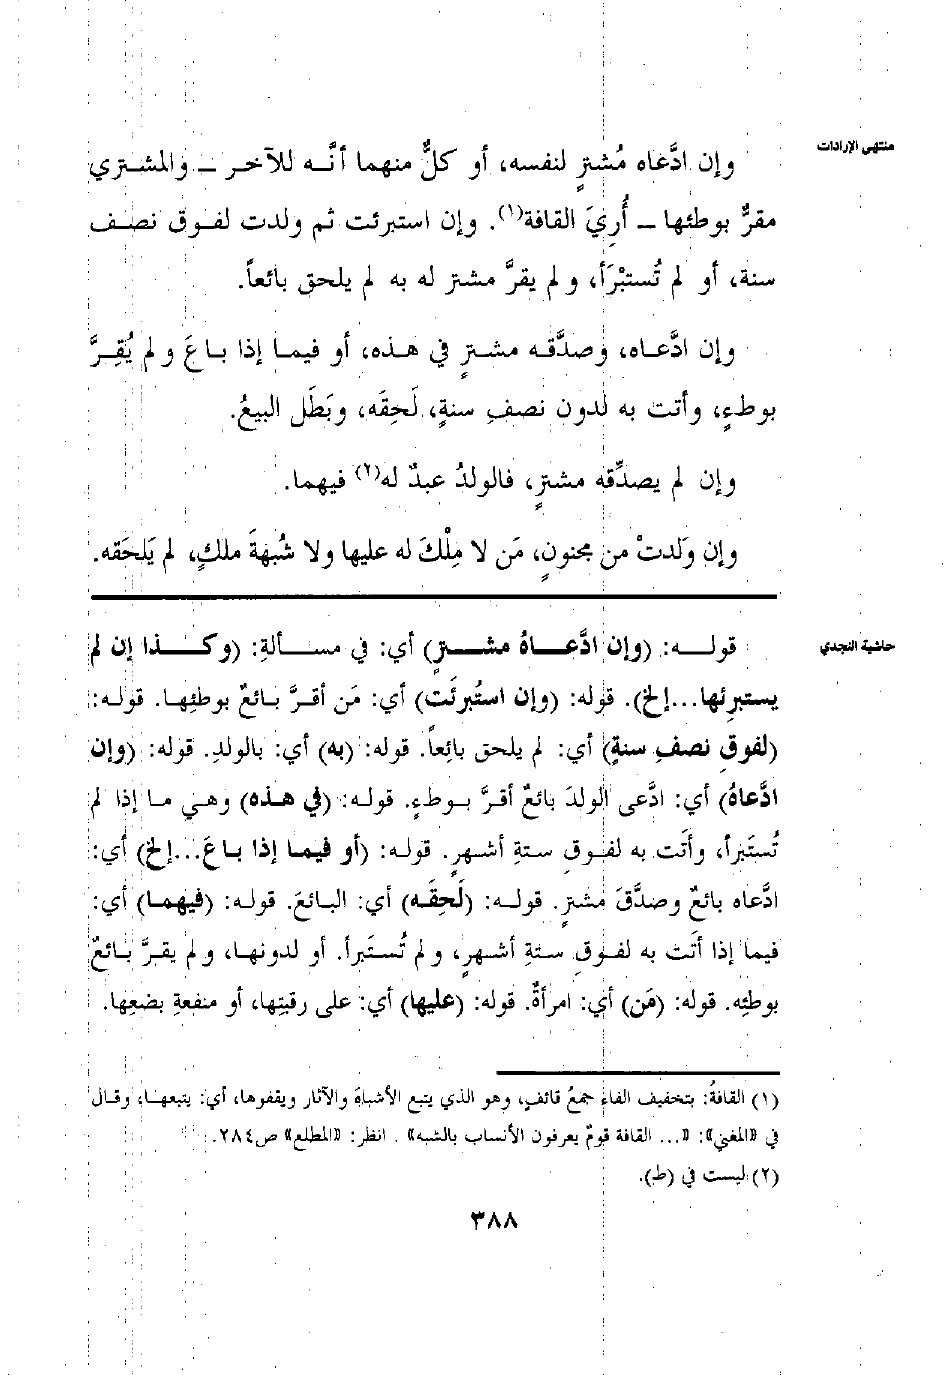 منتهى الإرادات
وإن ادَّعاه مُشترٍ لنفسه، أو كلٌّ منهما أنَّه للآخر ــ والمشتري
مقرٌّ بوطئها ــ أُرِيَ القافة(١). وإن استبرئت ثم ولدت لفوق نصف
سنة، أو لم تُستبْرَأ، ولم يقرَّ مشترٍ له به لم يلحق بائعاً.
وإن ادَّعاه، وصدَّقه مشترٍ في هذه، أو فيما إذا باعَ ولم يُقِرَّ
بوطءٍ، وأتت به لدون نصفِ سنةٍ، لَحِقَه، وبَطَل البيعُ.
وإن لم يصدِّقه مشترٍ، فالولدُ عبدٌ له(٢) فيهما.
وإن وَلدتْ من مجنونٍ، مَن لا مِلْكَ له عليها ولا شُبهةَ ملكٍ، لم يَلحَقه.
حاشية النجدي
قولـه: (وإن ادَّعـاهُ مشـترٍ) أي: في مسـألةِ: (وكـذا إن لم
يستبرِئها...إلخ). قوله: (وإن استُبرئَت) أي: مَن أقرَّ بائعٌ بوطئِها. قوله:
(لفوقِ نصفِ سنةٍ) أي: لم يلحق بائِعاً. قوله: (به) أي: بالولدِ. قوله: (وإن
ادَّعاهُ) أي: ادَّعى الولدَ بائعٌ أقرَّ بوطءٍ. قوله: (في هذه) وهي ما إذا لم
تُستَبرأ، وأتَت به لفوقِ ستةِ أشهرٍ. قوله: (أو فيما إذا باعَ...إلخ) أي:
ادَّعاه بائعٌ وصدَّقَ مشترٍ. قوله: (لَحِقَه) أي: البائعَ. قوله: (فيهما) أي:
فيما إذا أتَت به لفوقِ ستةِ أشهرٍ، ولم تُستَبرأ. أو لدونها، ولم يقرَّ بائعٌ
بوطئِه. قوله: (مَن) أي: امرأةٌ. قوله: (عليها) أي: على رقبتِها، أو منفعةِ بضعِها.
(١) القافةُ: بتخفيف الفاء جمعُ قائفٍ، وهو الذي يتبع الأشباهَ والآثار ويقفوها، أي: يتبعها، وقال
في «المغني»: «... القافة قومٌ يعرفون الأنساب بالشبه» . انظر: «المطلع» ص٢٨٤.
(٢) ليست في (ط).
٣٨٨